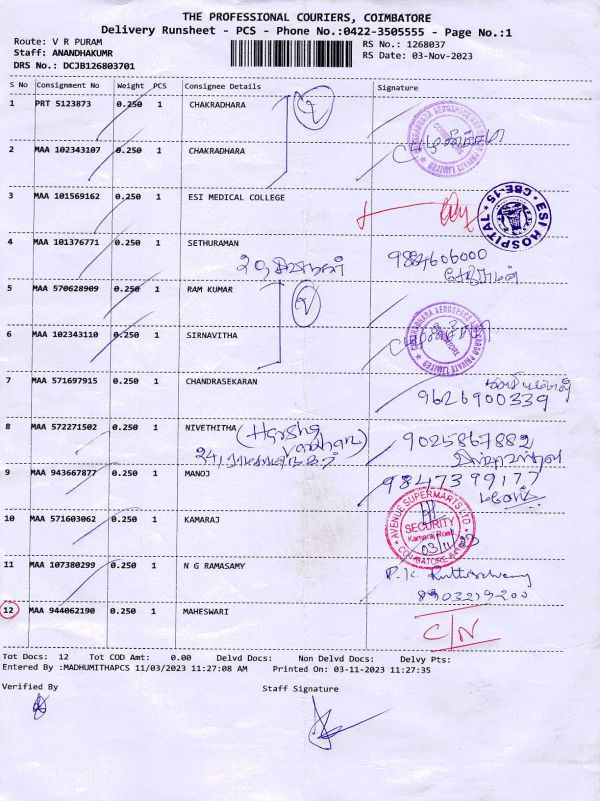 THE PROFESSIONAL COURIERS, COIMBATORE
Delivery Runsheet - PCS - Phone No.:0422-3505555 - Page No.:1
Route: V R PURAM
RS No.: 1268037
Staff: ANANDHAKUMR
RS Date: 03-Nov-2023
DRS No.: DCJB126803701
S No Consignment No Weight PCS Consignee Details Signature
1 PRT 5123873 0.250 1 CHAKRADHARA
2 MAA 102343107 0.250 1 CHAKRADHARA
3 MAA 101569162 0.250 1 ESI MEDICAL COLLEGE
ESI HOSPITAL CBE-15
4 MAA 101376771 0.250 1 SETHURAMAN
9884606000
சேதுராமன்
5 MAA 570628909 0.250 1 RAM KUMAR
6 MAA 102343110 0.250 1 SIRNAVITHA
CHAKRADHARA AEROSPACE CARGO PRIVATE LIMITED
COIMBATORE
7 MAA 571697915 0.250 1 CHANDRASEKARAN
9626900339
8 MAA 572271502 0.250 1 NIVETHITHA (Harsha Vardhan) 9025867882
9 MAA 943667877 0.250 1 MANOJ 9847399177
மனோஜ்
10 MAA 571603062 0.250 1 KAMARAJ
AVENUE SUPERMARTS LTD
SECURITY
Kamaraj Road
03/11/23
COIMBATORE
11 MAA 107380299 0.250 1 N G RAMASAMY
8903219200
12 MAA 944062190 0.250 1 MAHESWARI
C/N
Tot Docs: 12 Tot COD Amt: 0.00 Delvd Docs: Non Delvd Docs: Delvy Pts:
Entered By :MADHUMITHAPCS 11/03/2023 11:27:08 AM Printed On: 03-11-2023 11:27:35
Verified By Staff Signature